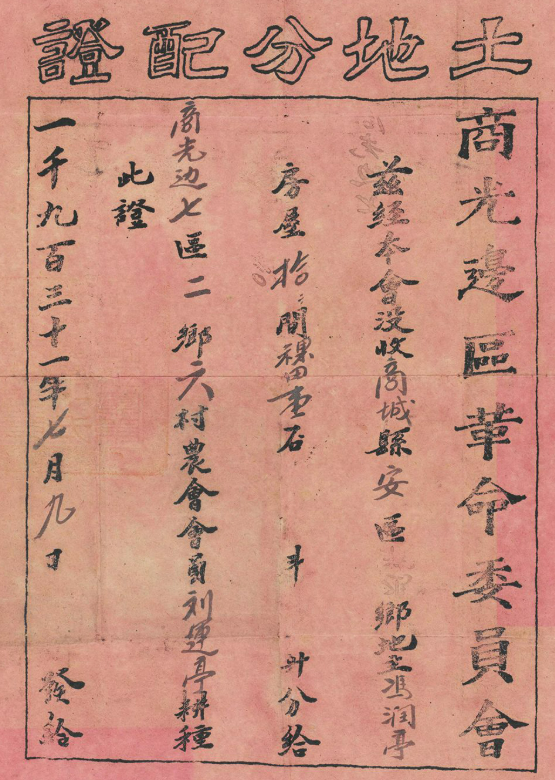 土地分配證
商光邊區革命委員會
茲經本會没收商城縣安區鄉地主馮润亭
房屋拾間稞田壹石 斗 廾分給
商光边七區二鄉六村農會會員刘運亭耕種
此證
一千九百三十一年七月九日 發給